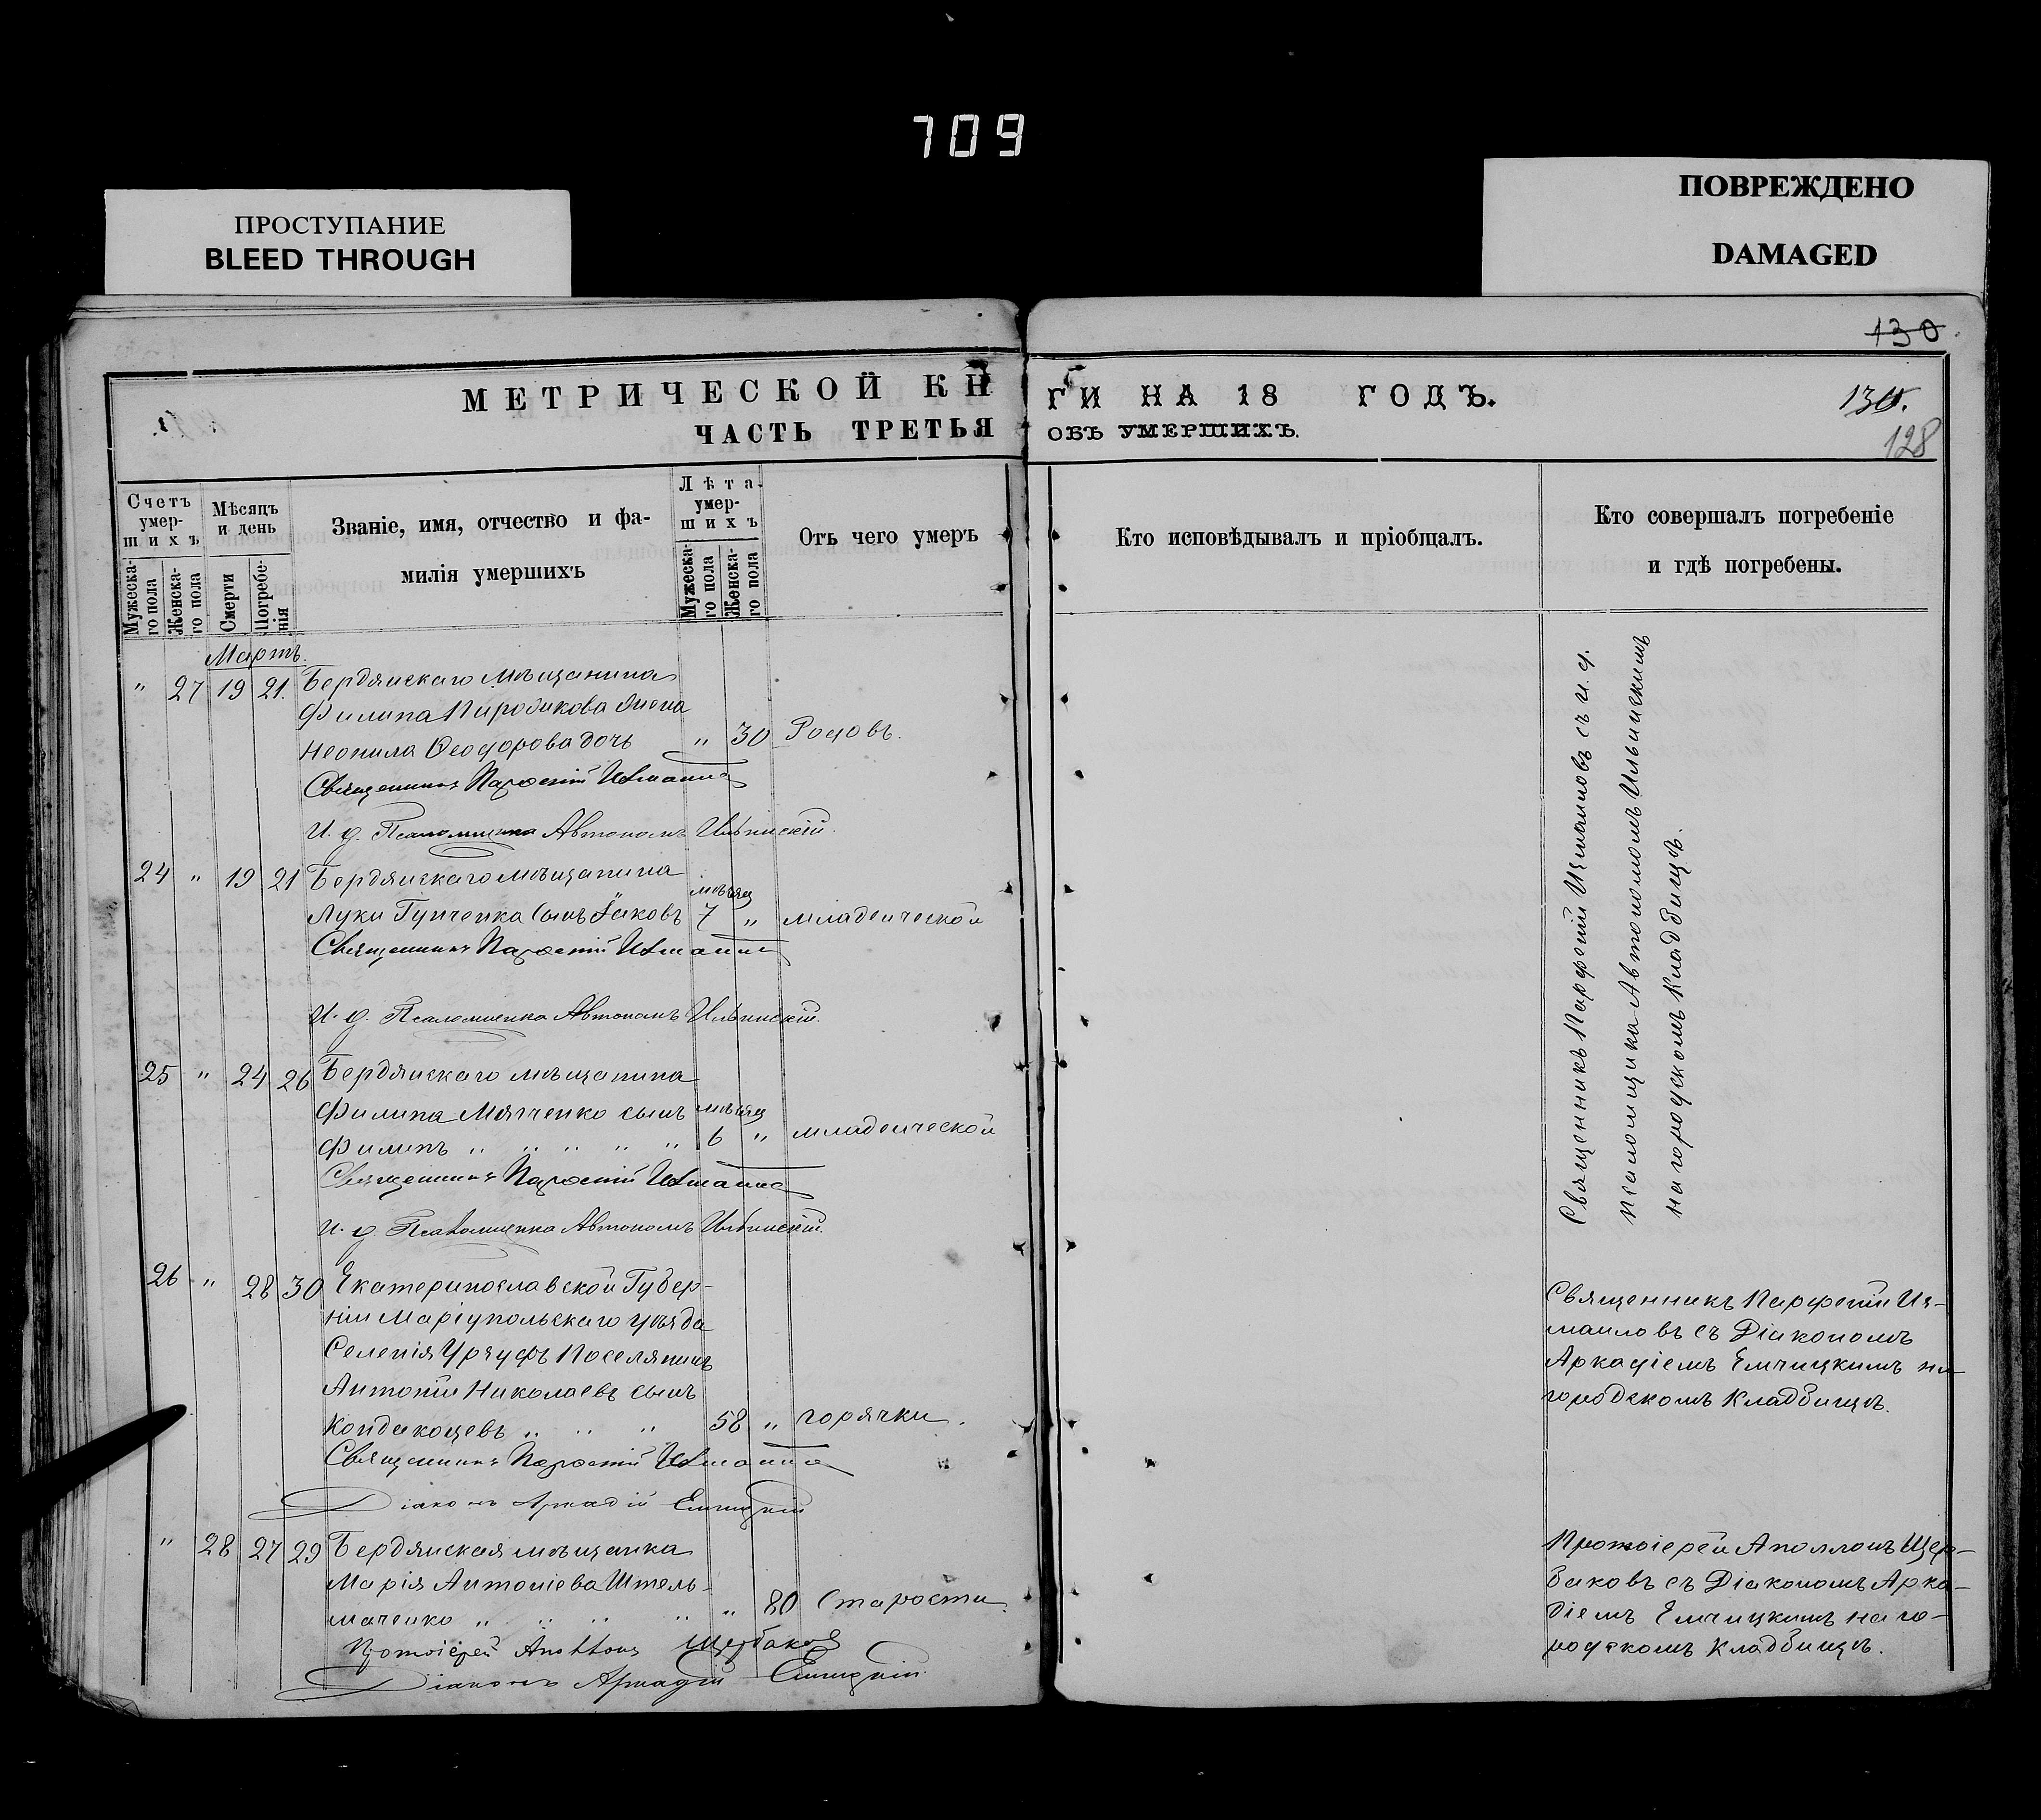 709
ПРОСТУПАНИЕ
BLEED THROUGH
ПОВРЕЖДЕНО
DAMAGED
130
МЕТРИЧЕСКОЙ КНИГИ НА 18 ГОДЪ.
130.
ЧАСТЬ ТРЕТЬЯ ОБЪ УМЕРШИХЪ.
128
Счетъ умер-шихъ
Мужеска-го пола
Женска-го пола
Мѣсяцъ и день
Смерти
Погребе-нія
Званіе, имя, отчество и фа-
милія умершихъ
Лѣта умер-шихъ
Мужеска-го пола
Женска-го пола
Отъ чего умеръ
Кто исповѣдывалъ и пріобщалъ.
Кто совершалъ погребеніе
и гдѣ погребены.
Мартъ.
" 27 19 21. Бердянскаго мѣщанина
Филипа жена
Неонила Ѳеодорова дочь " 30 Родовъ.
Священникъ Парѳеній Измаиловъ
И. д. Псаломщика Автономъ Ильинскій.
24 " 19 21 Бердянскаго мѣщанина
Луки сынъ Іаковъ мѣсяц 7 " младенческой
Священникъ Парѳеній Измаиловъ
И. д. Псаломщика Автономъ Ильинскій.
25 " 24 26 Бердянскаго мѣщанина
Филипа сынъ мѣсяц
Филипъ " " " " " 6 " младенческой
Священникъ Парѳеній Измаиловъ
И. д. Псаломщика Автономъ Ильинскій.
26 " 28 30 Екатеринославской Губер-
ніи Маріупольскаго уѣзда
Селенія Урзуфъ Поселянинъ
Антоній Николаевъ сынъ
" " " 58 " горячки.
Священникъ Парѳеній Измаиловъ
Діаконъ Аркадій Емчицкій
" 28 27 29 Бердянская мѣщанка
Марія Антоніева Штель-
маченко " " " " " 80 Старости.
Протоіерей Аполлонъ Щербаковъ
Діаконъ Аркадій Емчицкій
Священникъ Парфеній Измаиловъ съ и. д.
псаломщика Автономомъ Ильинскимъ
на городскомъ кладбищѣ.
Священникъ Парфеній Из-
маиловъ съ Діакономъ
Аркадіемъ Емчицкимъ на
городскомъ кладбищѣ.
Протоіерей Аполлонъ Щер-
баковъ съ Діакономъ Арка-
діемъ Емчицкимъ на го-
родскомъ кладбищѣ.